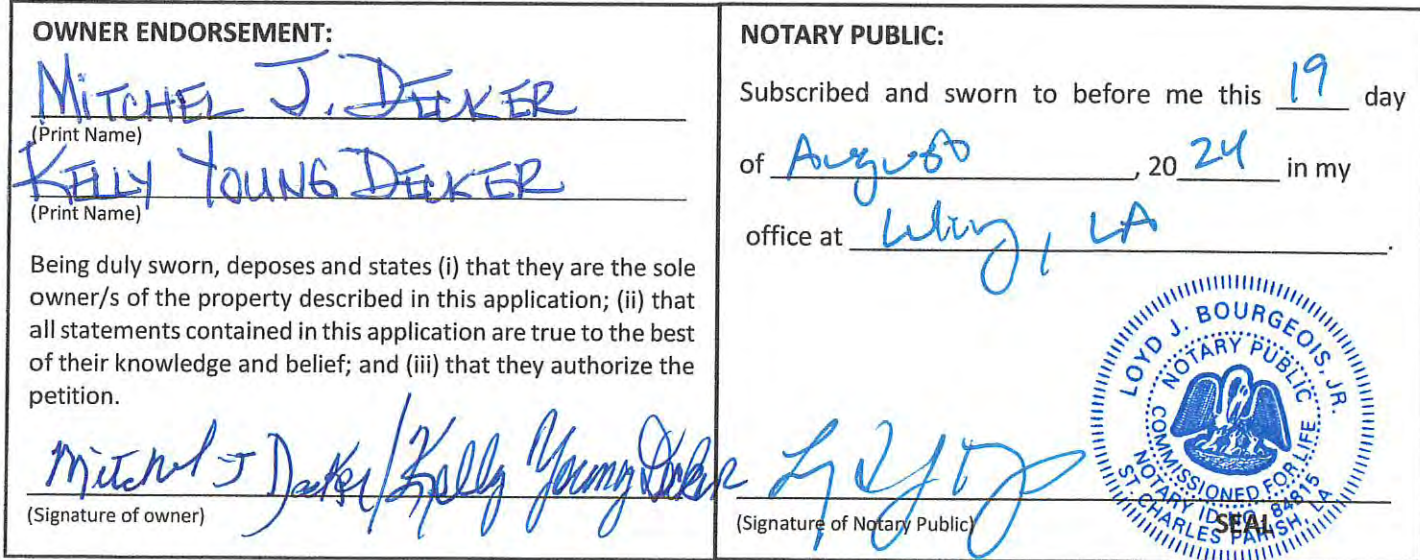 OWNER ENDORSEMENT:
MITCHEL J. DECKER
(Print Name)
KELLY YOUNG DECKER
(Print Name)
Being duly sworn, deposes and states (i) that they are the sole
owner/s of the property described in this application; (ii) that
all statements contained in this application are true to the best
of their knowledge and belief; and (iii) that they authorize the
petition.
Mitchel J Decker/Kelly Young Decker
(Signature of owner)
NOTARY PUBLIC:
Subscribed and sworn to before me this 19 day
of August, 2024 in my
office at Luling, LA.
(Signature of Notary Public)
SEAL
LOYD J. BOURGEOIS, JR.
NOTARY PUBLIC
COMMISSIONED FOR LIFE
NOTARY ID NO. 84815
ST CHARLES PARISH, LA